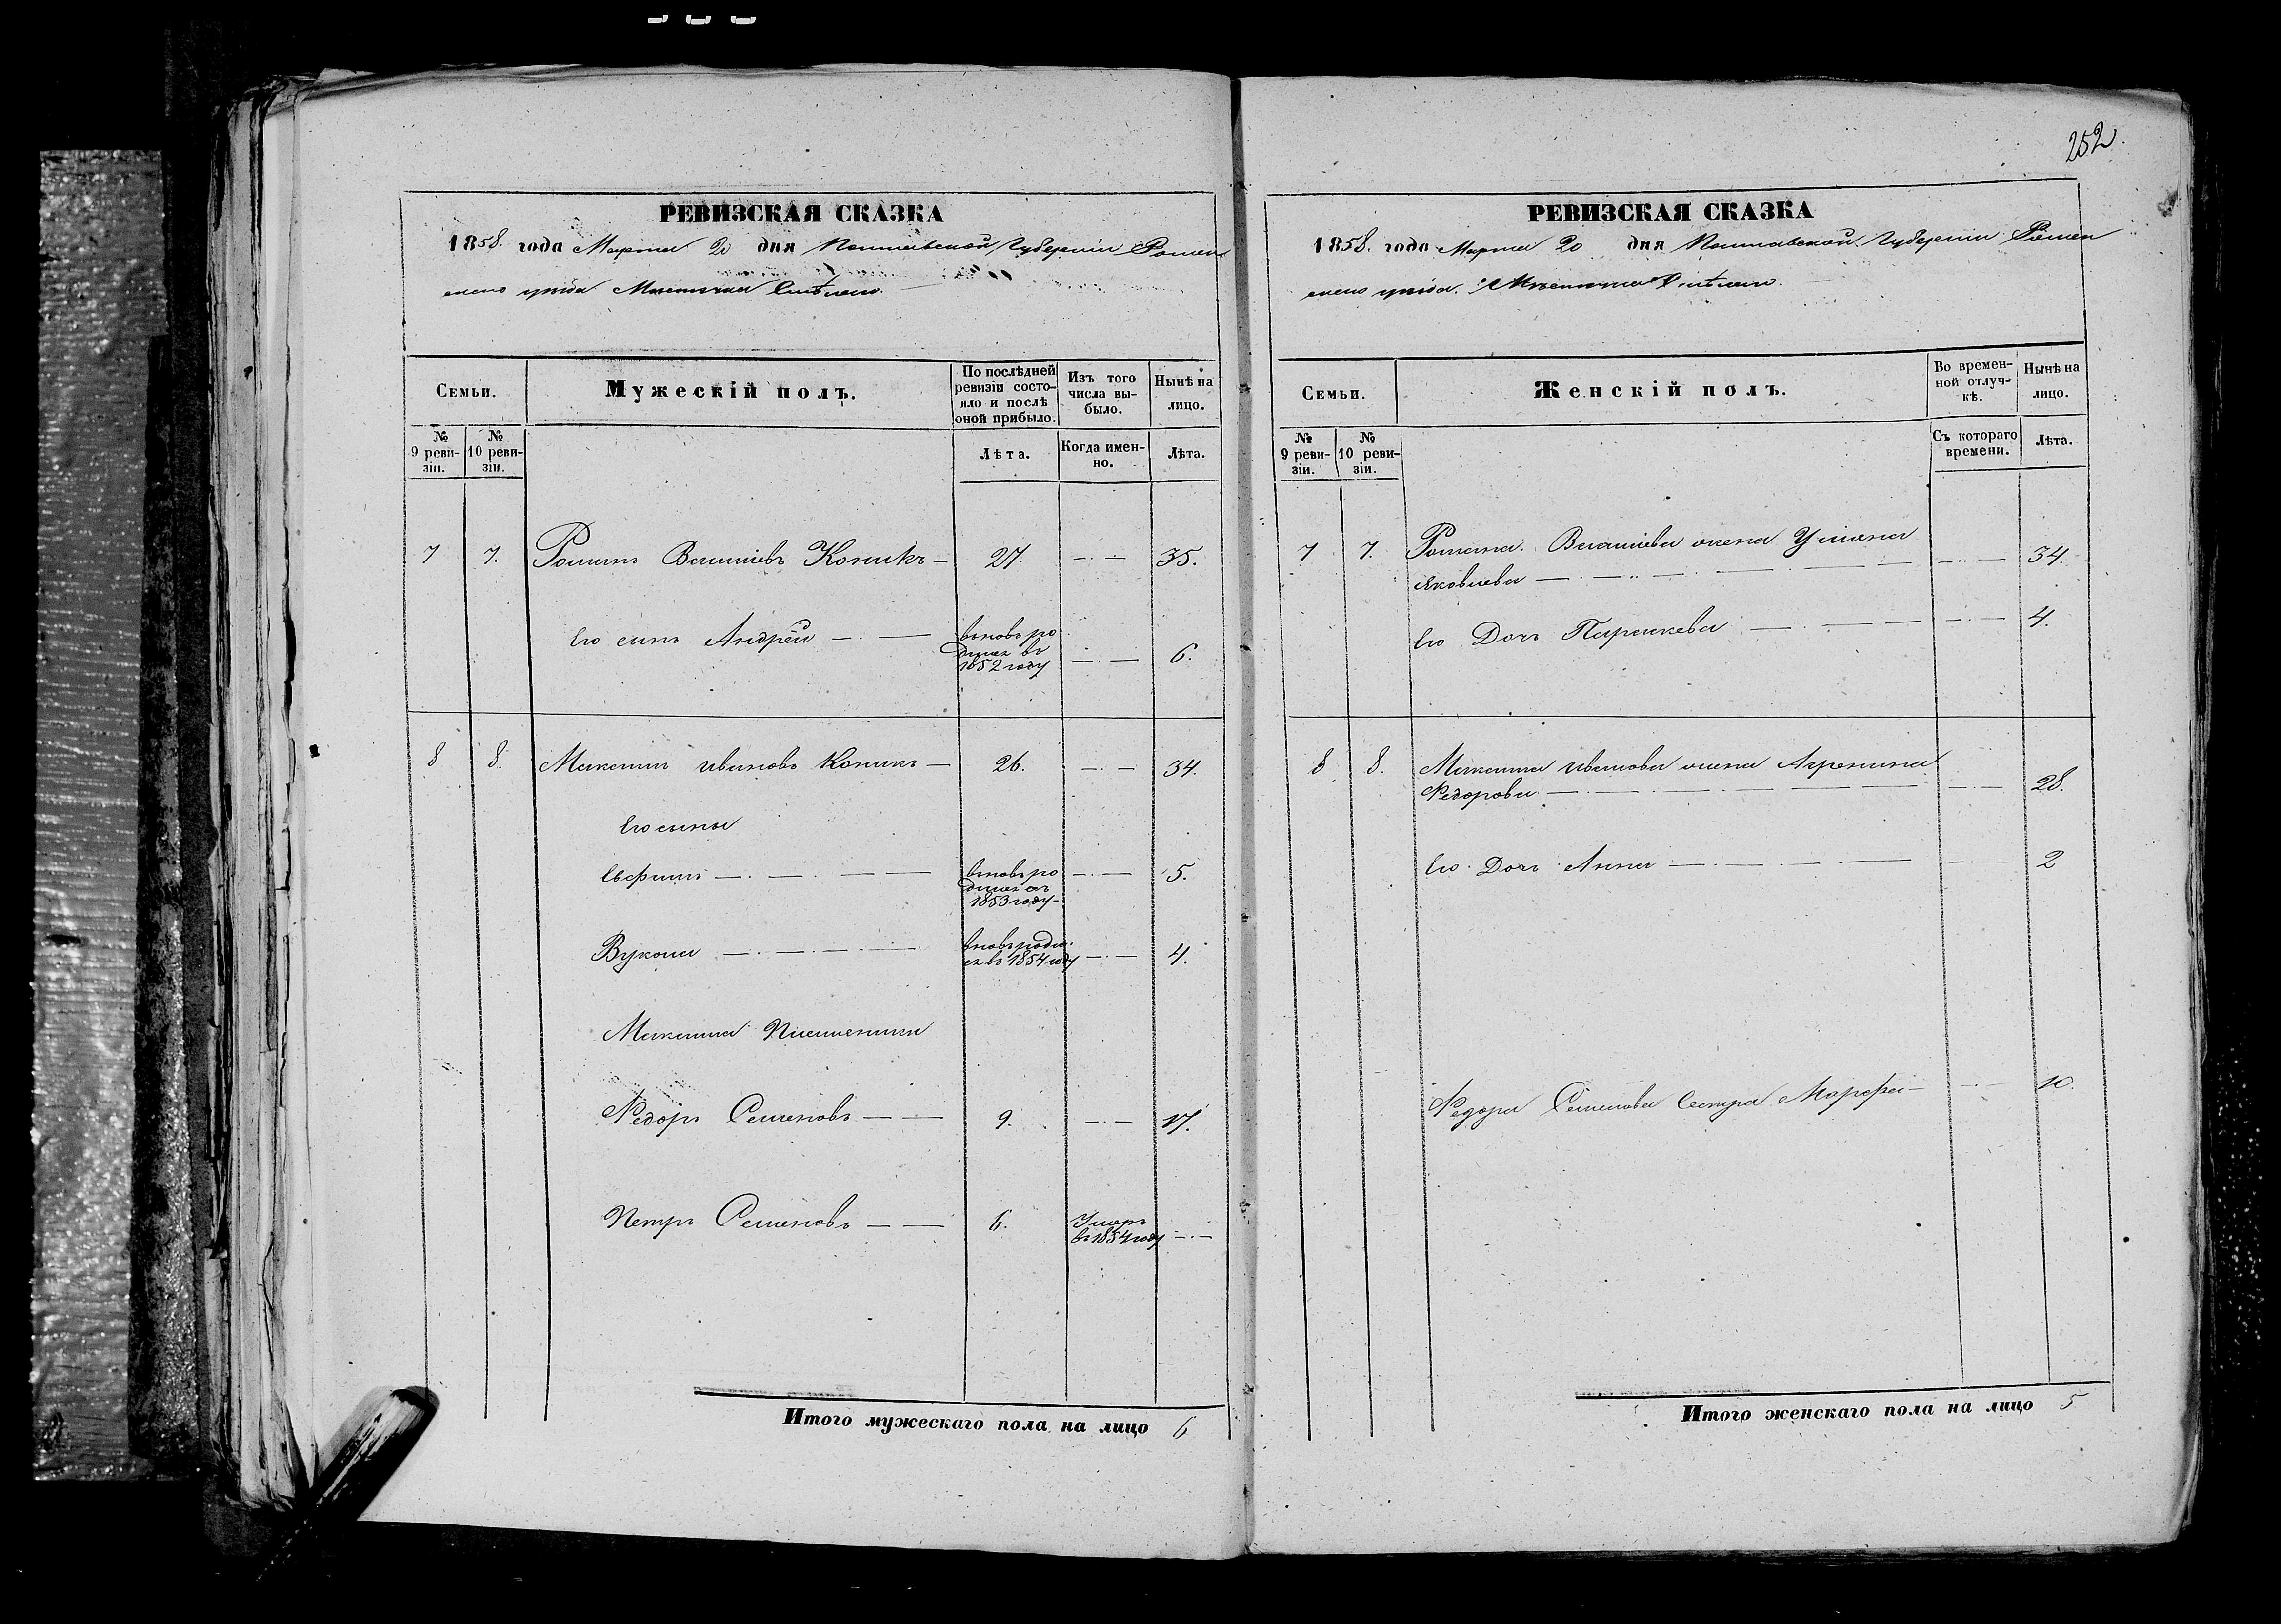 252
РЕВИЗСКАЯ СКАЗКА
1858. года Марта 20 дня Полтавской Губернии Ромен
скаго уѣзда Мѣстечка Смѣлаго.
Семьи.
Мужескій полъ.
По послѣдней ревизіи состояло и послѣ оной прибыло.
Изъ того числа выбыло.
Нынѣ на лицо.
№ 9 ревизіи.
№ 10 ревизіи.
Лѣта.
Когда именно.
Лѣта.
7 7. Романъ Власіевъ Коникъ — 27. — . — 35.
Его сынъ Андрей — . — вновь родился въ 1852 году — . — 6.
8 8. Максимъ Ивановъ Коникъ — 26. — . — 34.
Его сыны
Евфимъ — . — . — — вновь родился въ 1853 году — — . — 5.
Вукола — . — . — . — вновь родился въ 1854 году — . — 4.
Максима Племенники
Ѳедоръ Семеновъ — — 9. — . — 17.
Петръ Семеновъ — — 6. Умеръ въ 1854 году — . —
Итого мужескаго пола на лицо 6
РЕВИЗСКАЯ СКАЗКА
1858. года Марта 20 дня Полтавской Губернии Ромен
скаго уѣзда. Мѣстечка Смѣлаго.
Семьи.
Женскій полъ.
Во временной отлучкѣ.
Нынѣ на лицо.
№ 9 ревизіи.
№ 10 ревизіи.
Съ котораго времени.
Лѣта.
7 7. Романа Власіева жена Уліяна
Яковлева — . — . — 34.
Его Дочь Параскева — . — — 4.
8 8. Максима Иванова жена
Ѳедорова — . — . — 28.
Его Дочь Анна — . — . — 2
Ѳедора Семенова Сестра Марфа — — . — 10.
Итого женскаго пола на лицо 5